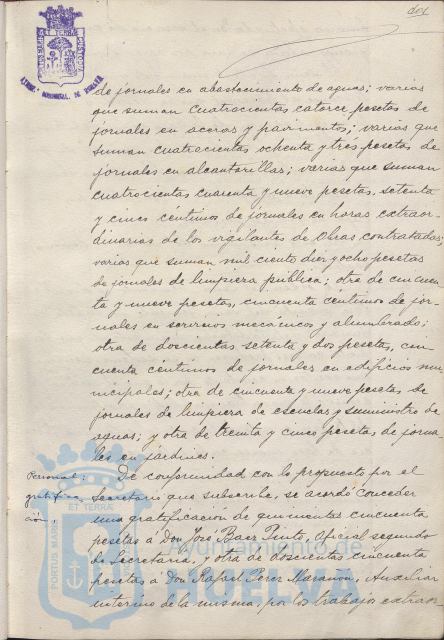 dos
PORTUS MARIS ET TERRÆ CUSTODIA
de jornales en abastecimiento de aguas; varias
que suman cuatrocientas catorce pesetas de
jornales en aceras y pavimentos; varias que
suman cuatrocientas ochenta y tres pesetas de
jornales en alcantarillas; varias que suman
cuatrocientas cuarenta y nueve pesetas, setenta
y cinco céntimos de jornales en horas extraor-
dinarias de los vigilantes de Obras contratadas;
varias que suman mil ciento diez y ocho pesetas
de jornales de limpieza pública; otra de cincuen-
ta y nueve pesetas, cincuenta céntimos de jor-
nales en servicios mecánicos y alumbrado;
otra de doscientas setenta y dos pesetas, cin-
cuenta céntimos de jornales en edificios mu-
nicipales; otra de cincuenta y nueve pesetas de
jornales de limpieza de escuelas y suministro de
aguas; y otra de treinta y cinco pesetas de jorna-
les en jardines.
Personal:
gratifica-
ción
De conformidad con lo propuesto por el
Secretario que subscribe, se acordó conceder
una gratificación de quinientas cincuenta
pesetas á don José Baez Pinto, Oficial segundo
de Secretaría, y otra de doscientas cincuenta
pesetas á don Rafael Perez Marañón, Auxiliar
interino de la misma, por los trabajos extraor-
PORTUS MARIS ET TERRÆ
Ayuntamiento de
HUELVA